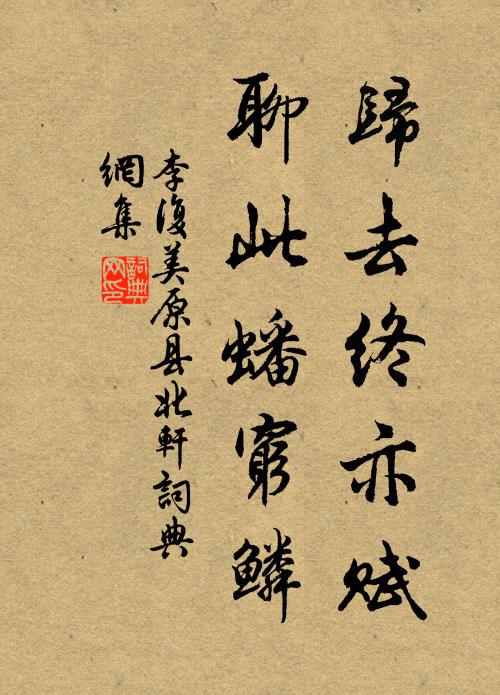 歸去終亦賦
聊此蟠窮鱗
李復美原县北軒詞典
網集
詞典網印